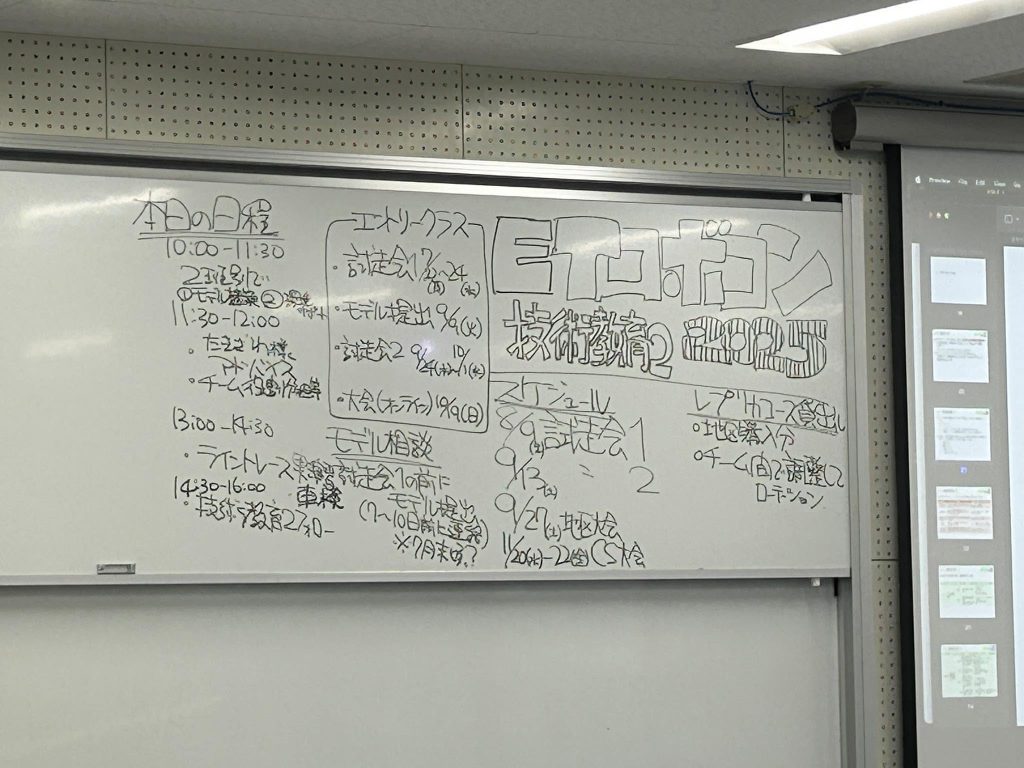 本日の日程
10:00-11:30
2班別で
①モデル ②
11:30-12:00
・たまざわ様
アドバイス
・チーム役割
13:00-14:30
・ライントレース
車検
14:30-16:00
・技術教育2フォロー
エントリークラス
・試走会1 7/ ~24
・モデル提出 9/ (火)
・試走会2 9/24(水)~10/1(水)
・大会(オンライン) 10/19(日)
モデル相談
試走会1の前に
モデル提出
(7~10日前に連絡)
※7月末頃?
ETロボコン
技術教育2 2025
スケジュール
8/9(土)試走会1
9/13(土) 〃 2
9/27(土)地区大会
11/20(木)-22(土)CS大会
レプリカコース貸出し
・地区購入分
・チーム間で調整して
ローテーション